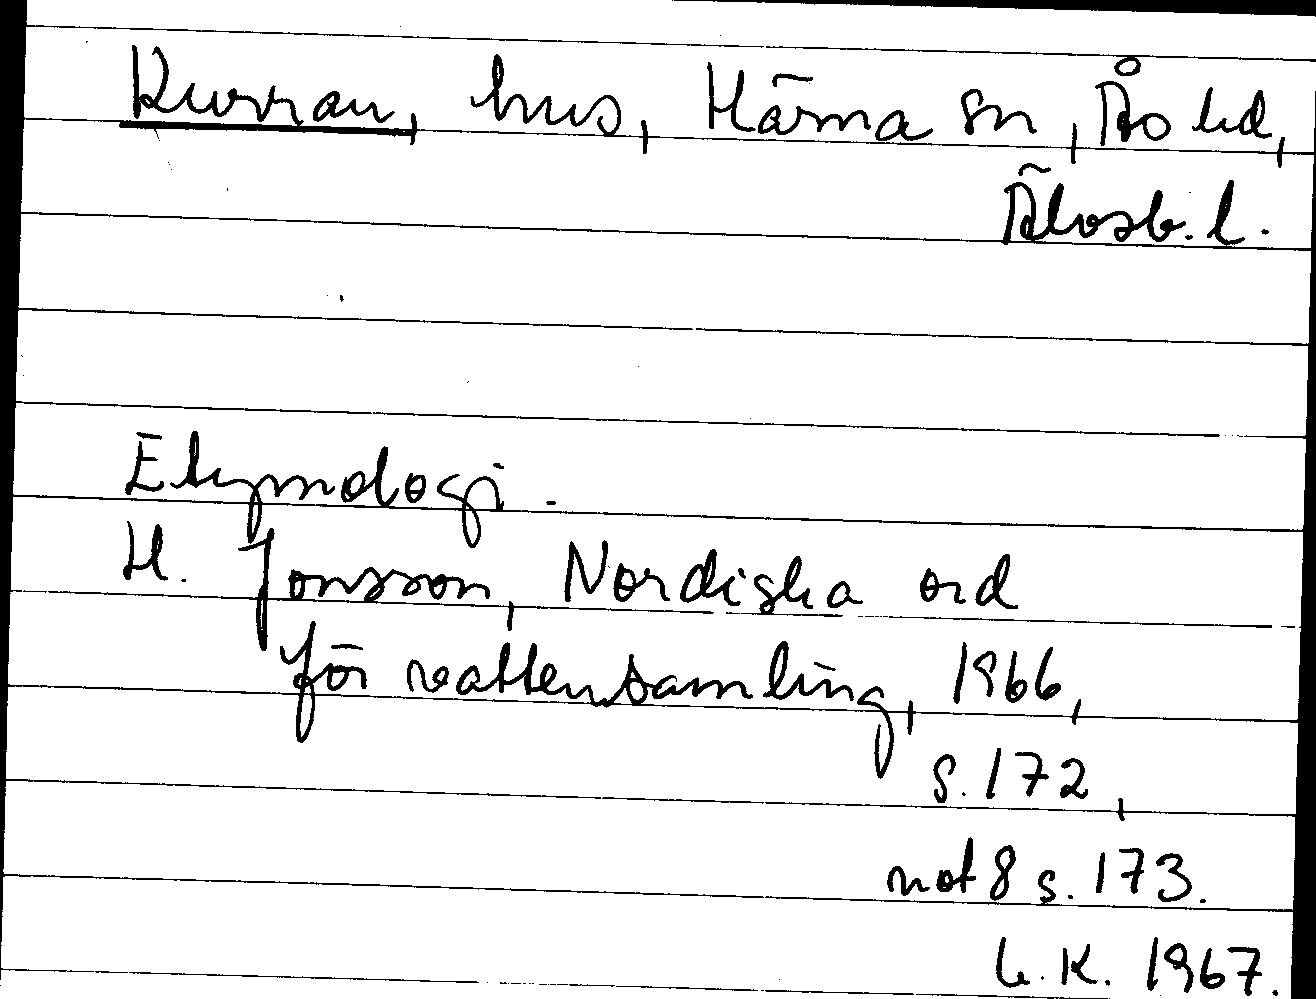 Kurran, hus, Härna sn, Ås hd,
Älvsb. l.
Etymologi.
H. Jonsson, Nordiska ord
för vattensamling, 1966,
s. 172,
not 8 s. 173.
L. K. 1967.